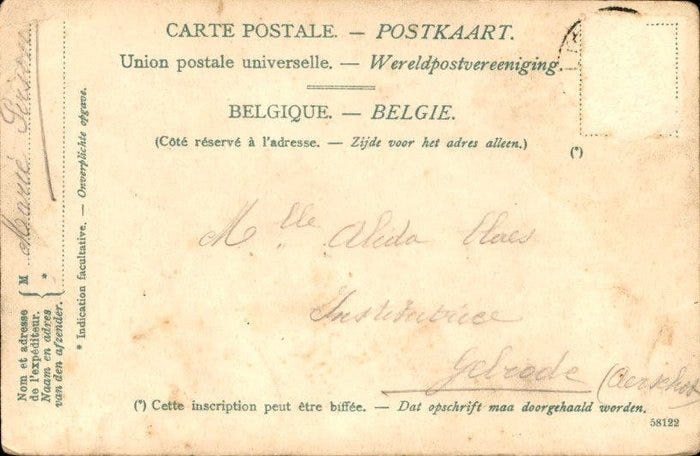 CARTE POSTALE. — POSTKAART.
Union postale universelle. — Wereldpostvereeniging.
BELGIQUE. — BELGIE.
(Côté réservé à l'adresse. — Zijde voor het adres alleen.)
(*)
Mlle Alida
Institutrice
Gelrode (Aerschot
(*) Cette inscription peut être biffée. — Dat opschrift maa doorgehaald worden.
58122
Nom et adresse
de l'expéditeur.
Naam en adres
van den afzender.
M Marie
*
* Indication facultative. — Onverplichte opgave.